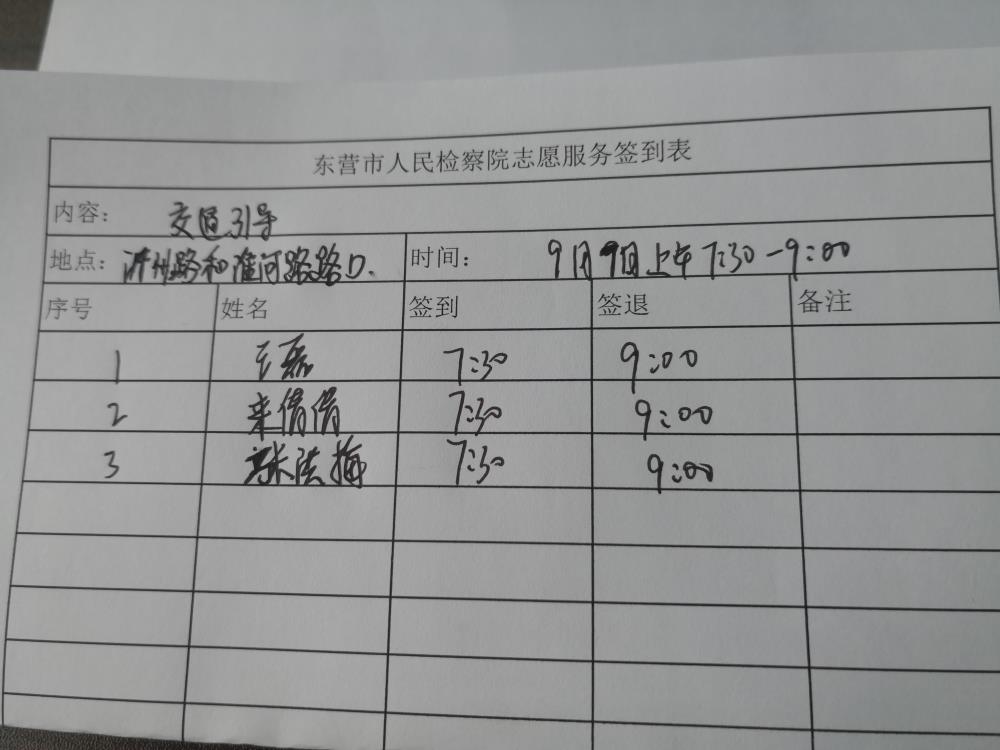 东营市人民检察院志愿服务签到表
内容： 交通引导
地点： 济州路和淮河路路口. 时间： 9月9日上午7:30-9:00
序号 姓名 签到 签退 备注
1 王磊 7:30 9:00
2 来倩倩 7:30 9:00
3 7:30 9:00